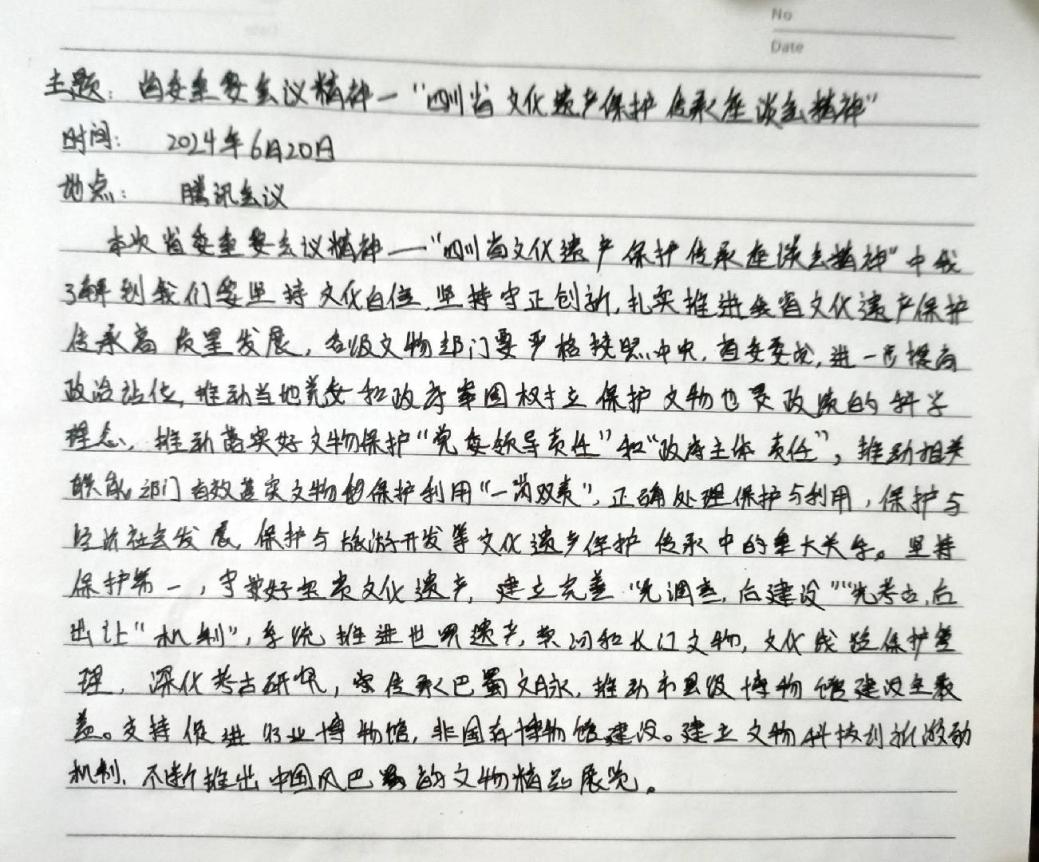 No
Date
主题：省委重要会议精神—“四川省文化遗产保护传承座谈会精神”
时间：2024年6月20日
地点：腾讯会议
本次省委重要会议精神—“四川省文化遗产保护传承座谈会精神”中我
了解到我们要坚持文化自信，坚持守正创新，扎实推进我省文化遗产保护
传承高质量发展，各级文物部门要严格按照中央，省委要求，进一步提高
政治站位，推动当地党委和政府牢固树立保护文物也是政绩的科学
理念，推动落实好文物保护“党委领导责任”和“政府主体责任”，推动相关
职能部门有效落实文物保护利用“一岗双责”，正确处理保护与利用，保护与
经济社会发展，保护与旅游开发等文化遗产保护传承中的重大关系。坚持
保护第一，守护好各类文化遗产，建立完善“先调查，后建设”“先考古，后
出让”机制”，系统推进世界遗产，黄河和长江文物，文化线路保护管
理，深化考古研究，传承巴蜀文脉，推动市县级博物馆建设全覆
盖。支持促进行业博物馆，非国有博物馆建设。建立文物科技创新激励
机制，不断推出中国风巴蜀韵文物精品展览。